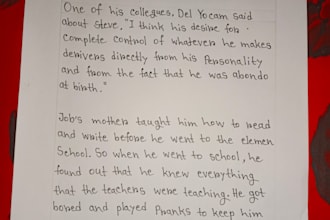 One of his collegues, Del Yocam said
about Steve, "I think his desire for
complete control of whatever he makes
derivers directly from his Personality
and from the fact that he was abondo
at birth."
Job's mother taught him how to read
and write before he went to the elemen
School. So when he went to school, he
found out that he knew everything
that the teachers were teaching. He got
bored and played Pranks to keep him